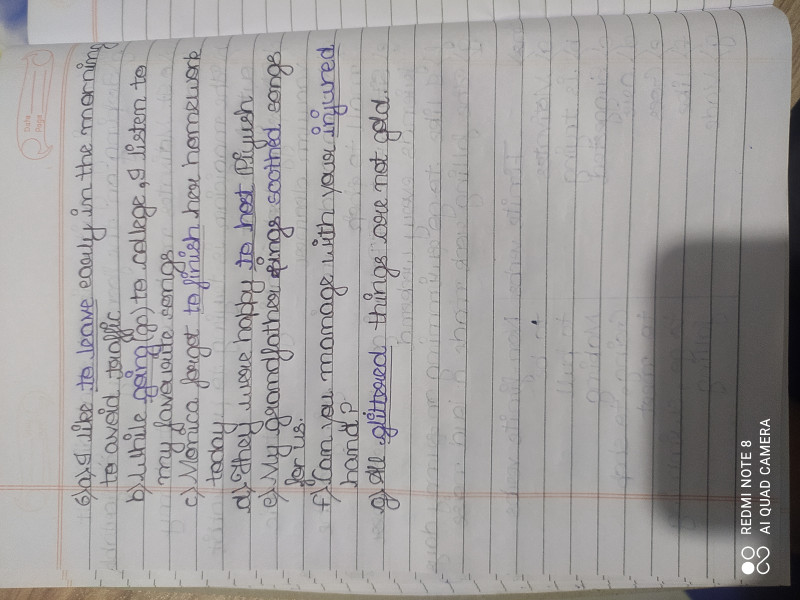 Date
Page
6)a) I like to leave early in the morning
to avoid traffic
b) While going (go) to college, I listen to
my favourite songs
c) Monica forgot to finish her homework
today
d) They were happy to host Piyush
e) My grandfather sings soothed songs
for us.
f) Can you manage with your injured
hand?
g) All glittered things are not gold.
REDMI NOTE 8
AI QUAD CAMERA